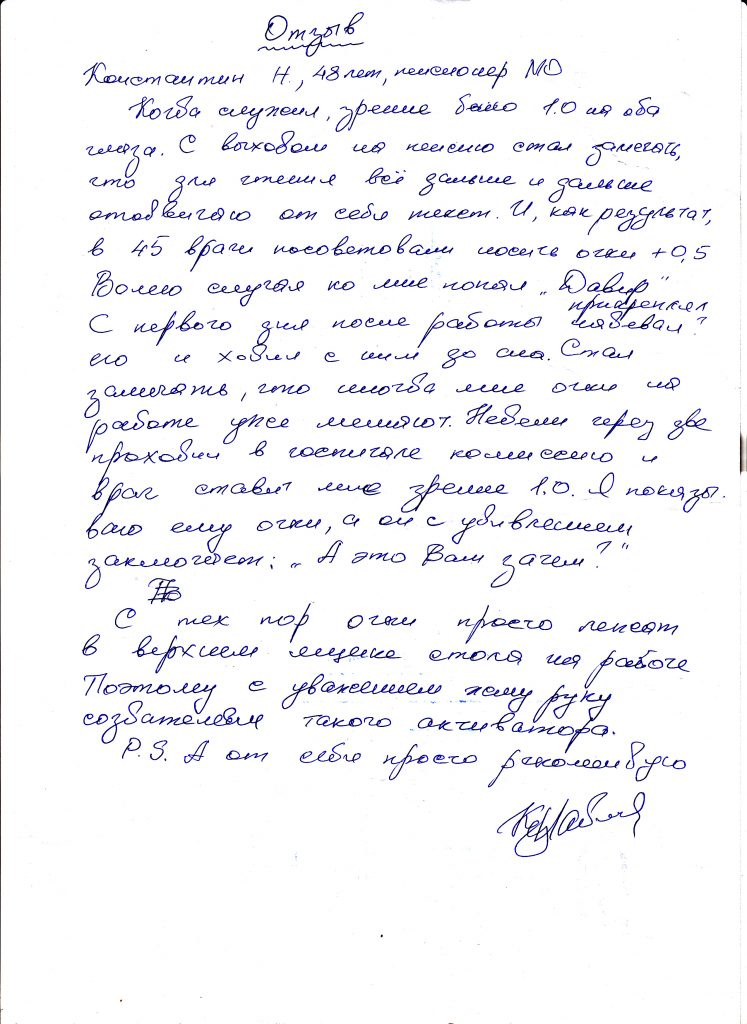 Отзыв
Константин Н., 48 лет, пенсионер МО
Когда служил, зрение было 1.0 на оба
глаза. С выходом на пенсию стал замечать,
что для чтения всё дальше и дальше
отодвигаю от себя текст. И, как результат,
в 45 врачи посоветовали носить очки +0,5
Волею случая ко мне попал „Давид"
прикрепил
С первого дня после работы надевал?
его и ходил с ним до сна. Стал
замечать, что иногда мне очки на
работе уже мешают. Недели через две
проходил в госпитале комиссию и
врач ставит мне зрение 1.0. Я показы
ваю ему очки, а он с удивлением
заключает: „А это Вам зачем?"
С тех пор очки просто лежат
в верхнем ящике стола на работе
Поэтому с уважением жму руку
создателям такого активатора.
P.S. А от себя просто рекомендую